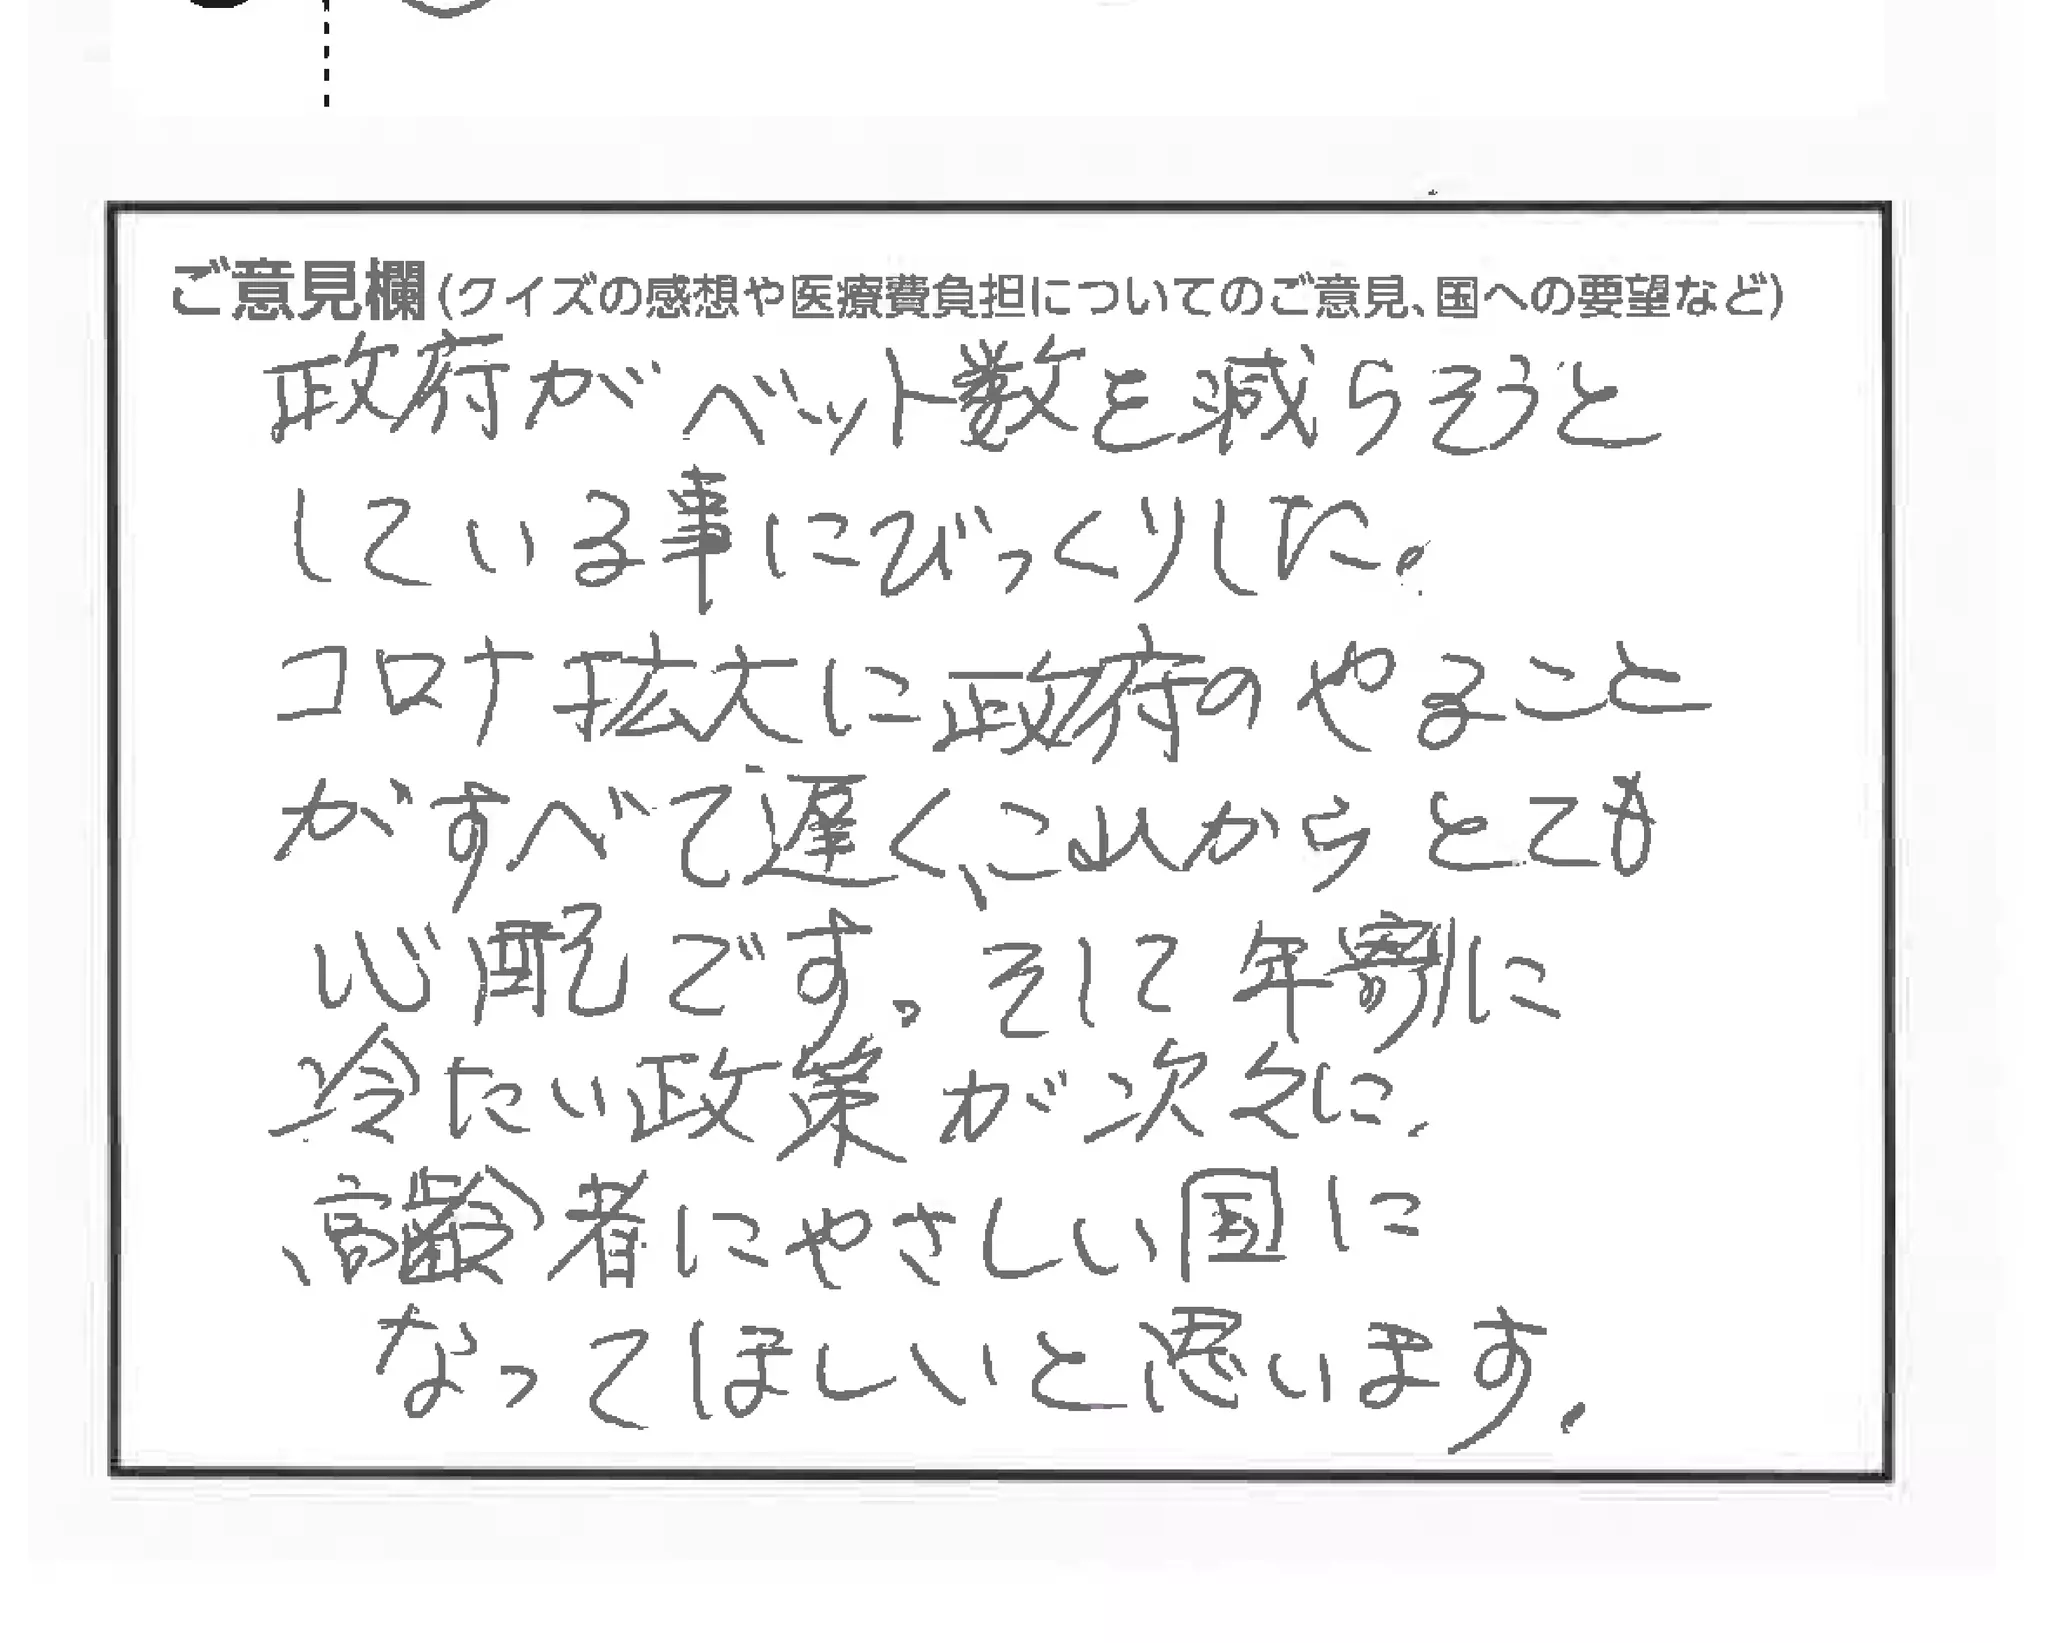 ご意見欄(クイズの感想や医療費負担についてのご意見、国への要望など)
政府がベット数を減らそうと
している事にびっくりした。
コロナ拡大に政府のやること
がすべて遅く、これからとても
心配です。そして年割に
冷たい政策が次々に、
、高齢者にやさしい国に
なってほしいと思います.